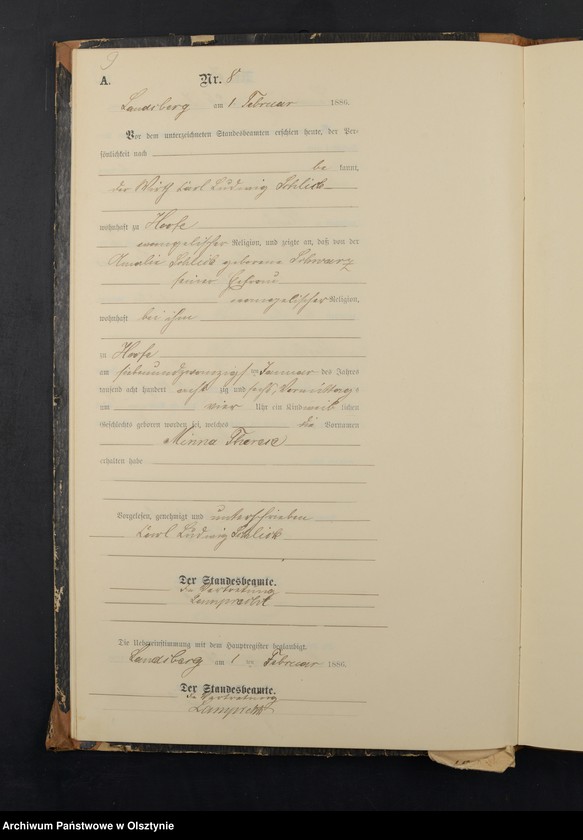 9
A. Nr. 8
Landsberg am 1 Februar 1886.
Vor dem unterzeichneten Standesbeamten erschien heute, der Per-
sönlichkeit nach
be kannt,
der Wirth Carl Ludwig Schlick
wohnhaft zu Hoofe
evangelischer Religion, und zeigte an, daß von der
Amalie Schlick geborene Schwarz
seiner Ehefrau
evangelischer Religion,
wohnhaft bei ihm
zu Hoofe
am siebenundzwanzigsten Januar des Jahres
tausend acht hundert acht zig und sechs, Vormittags
um vier Uhr ein Kind weib lichen
Geschlechts geboren worden sei, welches die Vornamen
Minna Therese
erhalten habe
Vorgelesen, genehmigt und unterschrieben
Carl Ludwig Schlick
Der Standesbeamte.
In Vertretung
Lamprecht
Die Uebereinstimmung mit dem Hauptregister beglaubigt.
Landsberg am 1 ten Februar 1886.
Der Standesbeamte.
In Vertretung
Lamprecht
Archiwum Państwowe w Olsztynie